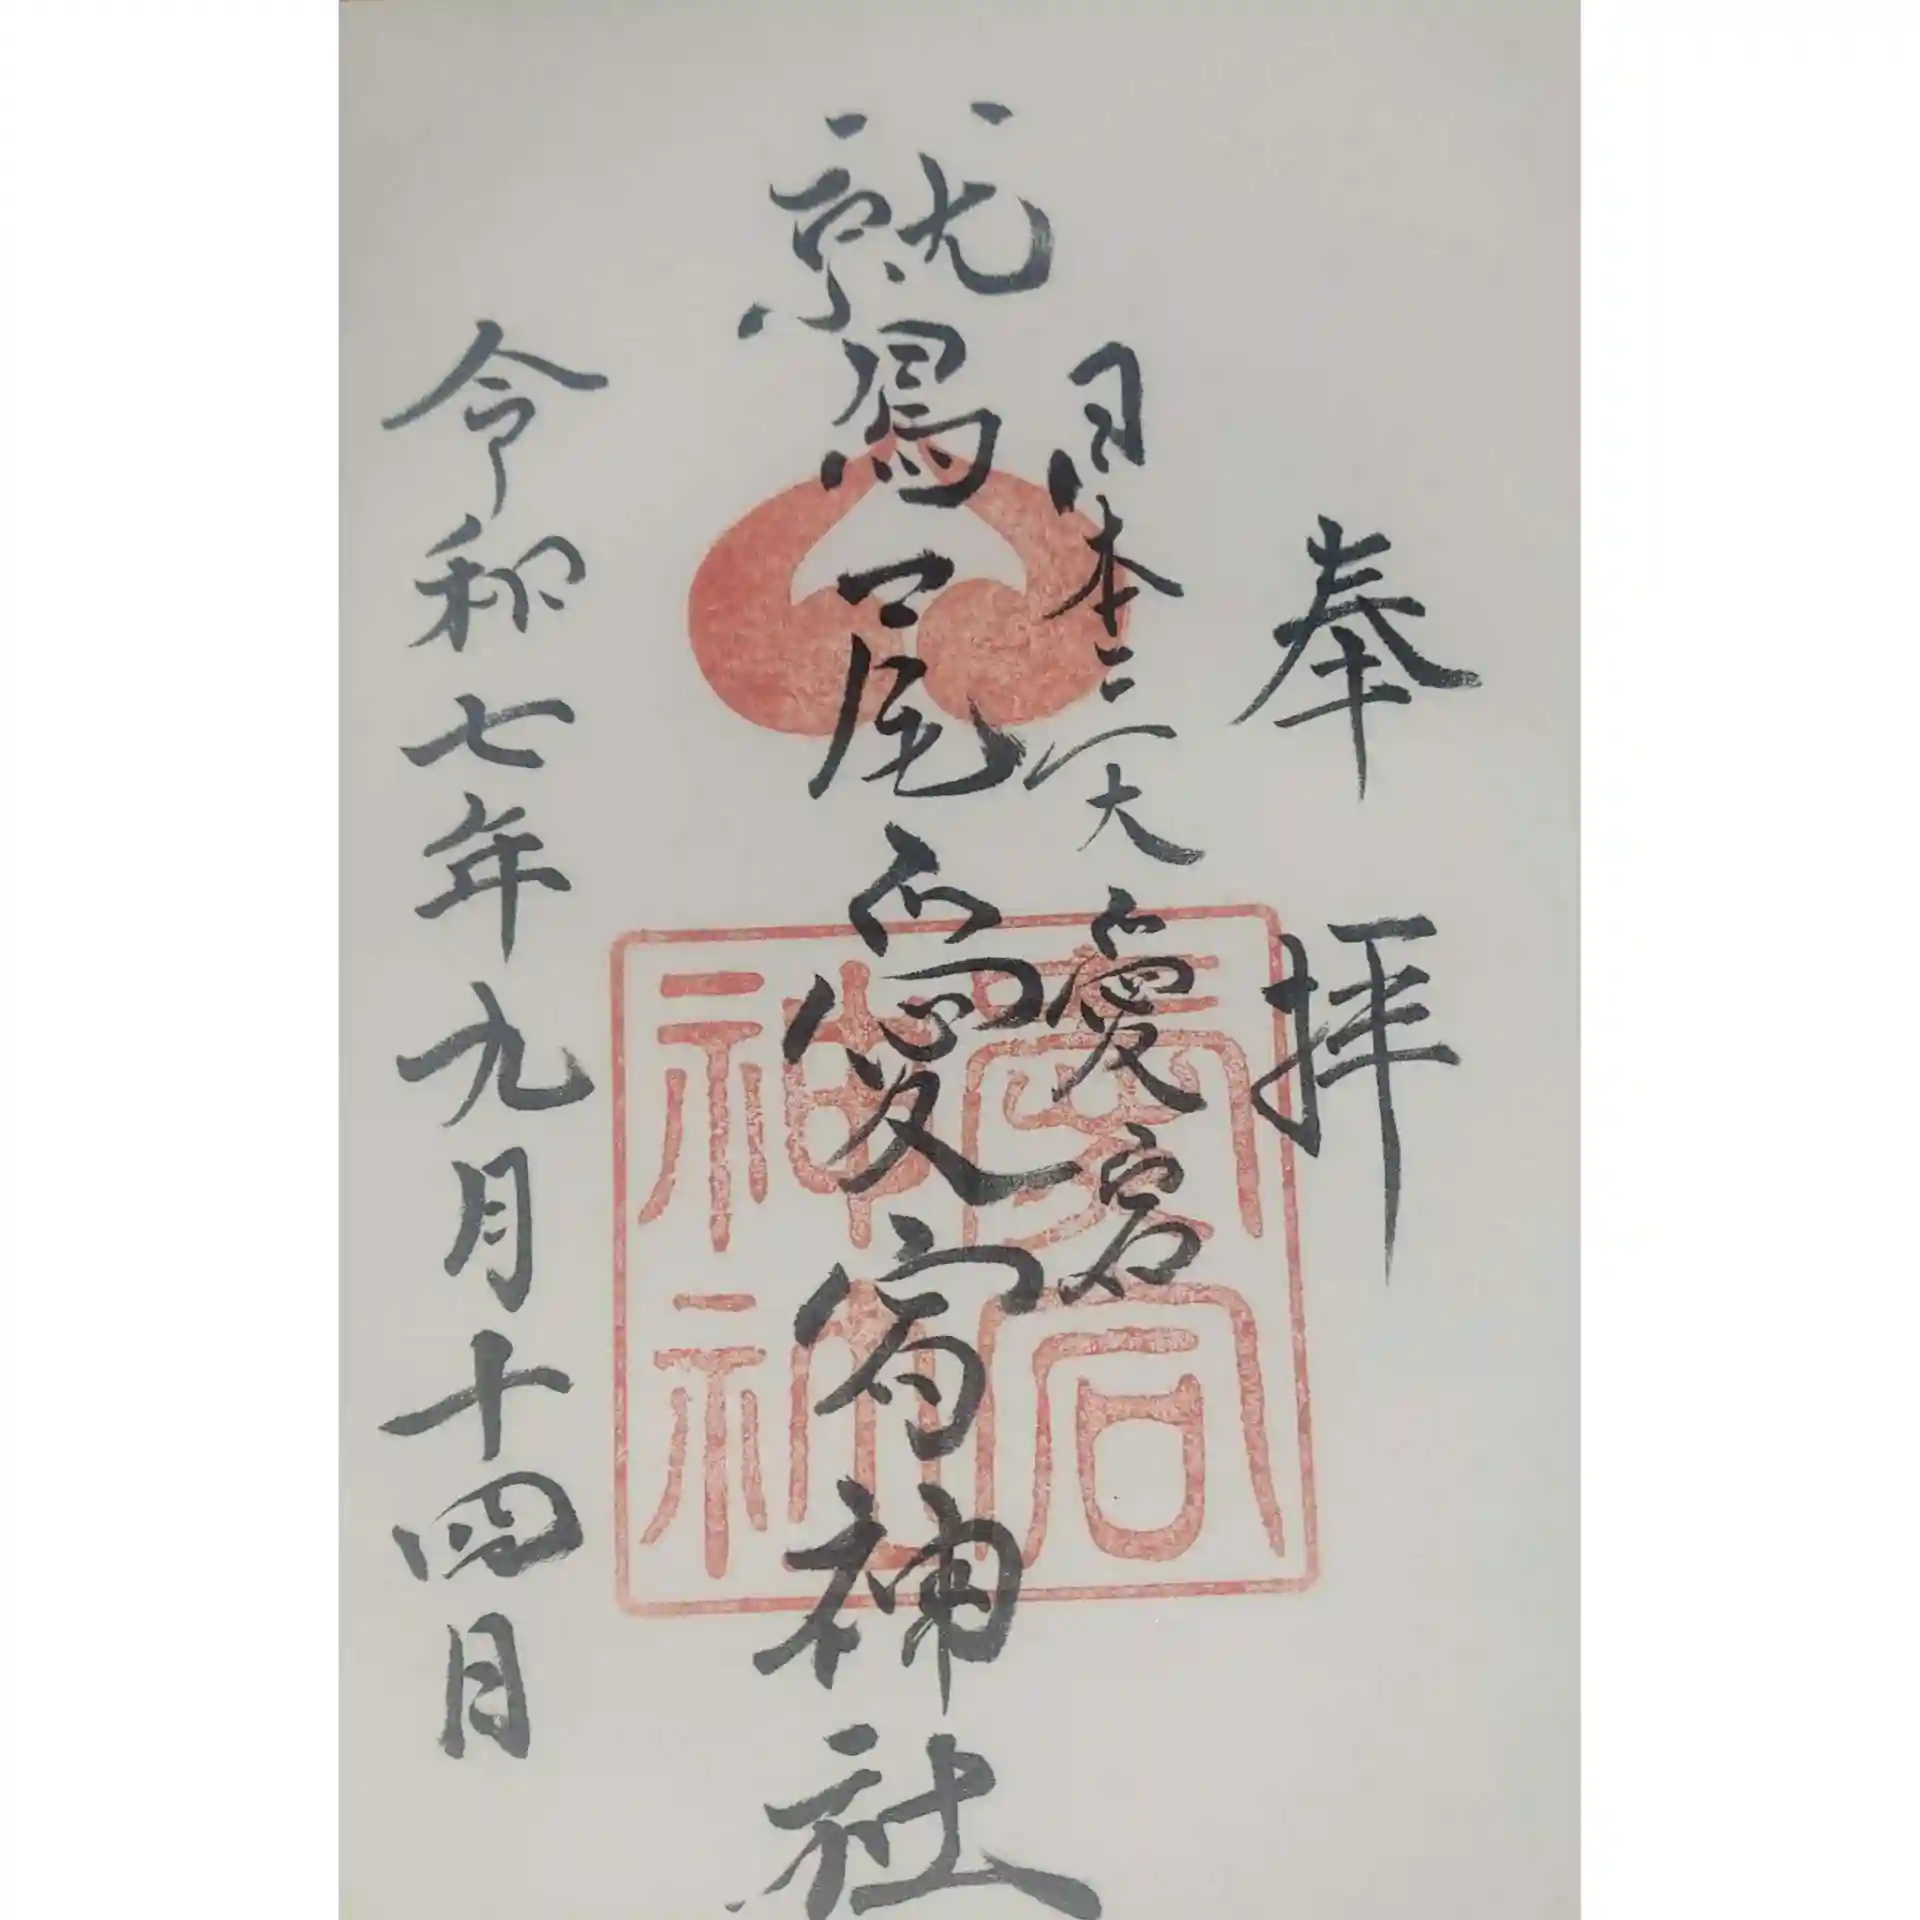 奉拝
日本三大愛宕
鷲尾愛宕神社
令和七年九月十四日
愛宕
神社